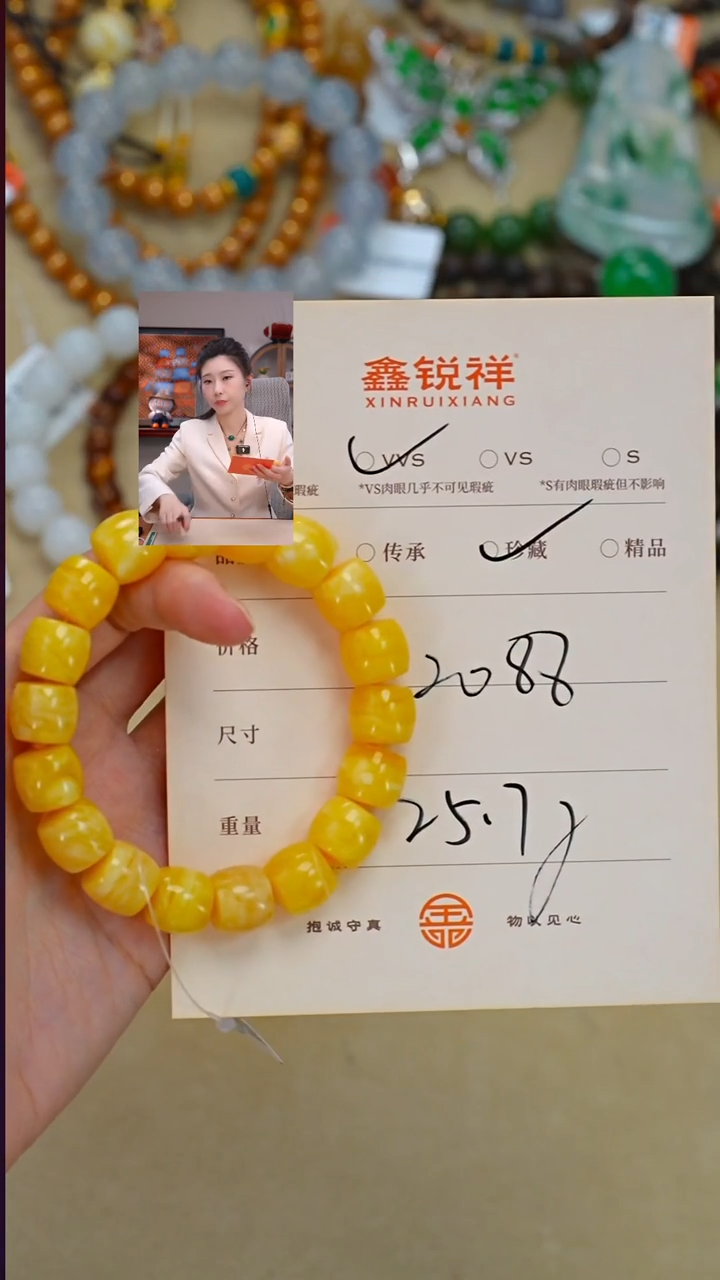 鑫锐祥
XINRUIXIANG
VVS VS S
瑕疵 *VS肉眼几乎不可见瑕疵 *S有肉眼瑕疵但不影响
传承 珍藏 精品
价格 2088
尺寸
重量 25.7g
抱诚守真 物以见心